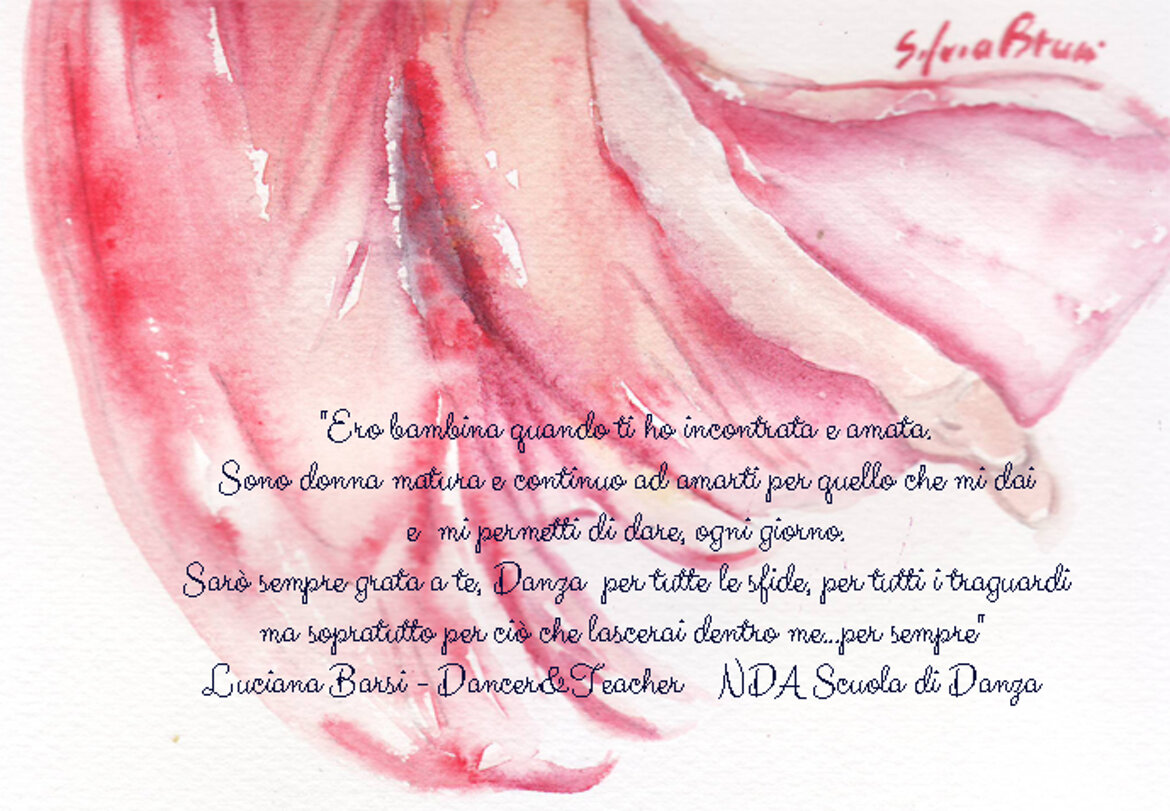 Silvia Bruni
"Ero bambina quando ti ho incontrata e amata.
Sono donna matura e continuo ad amarti per quello che mi dai
e mi permetti di dare, ogni giorno.
Sarò sempre grata a te, Danza per tutte le sfide, per tutti i traguardi
ma sopratutto per ciò che lascerai dentro me...per sempre"
Luciana Barsi - Dancer&Teacher NDA Scuola di Danza